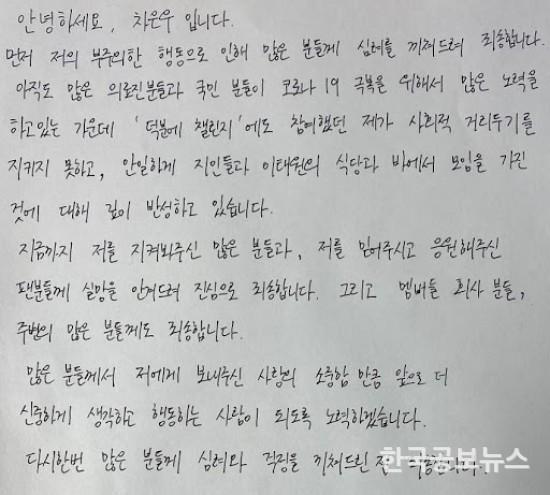 안녕하세요, 차은우 입니다.
먼저 저의 부주의한 행동으로 인해 많은 분들께 심려를 끼쳐드려 죄송합니다.
아직도 많은 의료진분들과 국민 분들이 코로나19 극복을 위해서 많은 노력을
하고있는 가운데 '덕분에 챌린지'에도 참여했던 제가 사회적 거리두기를
지키지 못하고, 안일하게 지인들과 이태원의 식당과 바에서 모임을 가진
것에 대해 깊이 반성하고 있습니다.
지금까지 저를 지켜봐주신 많은 분들과, 저를 믿어주시고 응원해주신
팬분들께 실망을 안겨드려 진심으로 죄송합니다. 그리고 멤버들 회사 분들,
주변의 많은 분들께도 죄송합니다.
많은 분들께서 저에게 보내주신 사랑의 소중함 만큼 앞으로 더
신중하게 생각하고 행동하는 사람이 되도록 노력하겠습니다.
다시한번 많은 분들께 심려와 걱정을 끼쳐드린 점
한국공보뉴스